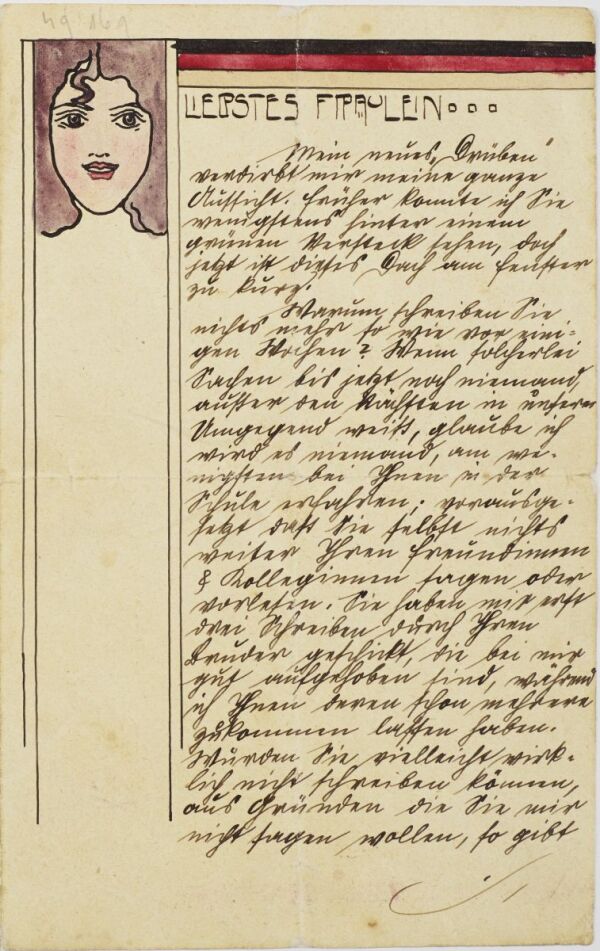 49 169
LIEBSTES FRÄULEIN...
Mein neues „Drüben“
verdirbt mir meine ganze
Aussicht. Früher konnte ich Sie
wenigstens hinter einem
grünen Versteck sehen, doch
jetzt ist dieses Dach am Fenster
zu kurz.
Warum schreiben Sie
nichts mehr so wie vor eini-
gen Wochen? Wenn solcherlei
Sachen bis jetzt noch niemand,
außer den Nächsten in unserer
Umgegend weiß, glaube ich
wird es niemand, am we-
nigsten bei Ihnen in der
Schule erfahren; vorausge-
setzt daß Sie selbst nichts
weiter Ihren Freundinnen
& Kolleginnen sagen oder
vorlesen. Sie haben mir erst
drei Schreiben durch Ihren
Bruder geschickt, die bei mir
gut aufgehoben sind, während
ich Ihnen deren schon mehrere
zukommen lassen haben.
Würden Sie vielleicht wirk-
lich nicht schreiben können,
aus Gründen die Sie mir
nicht sagen wollen, so gibt